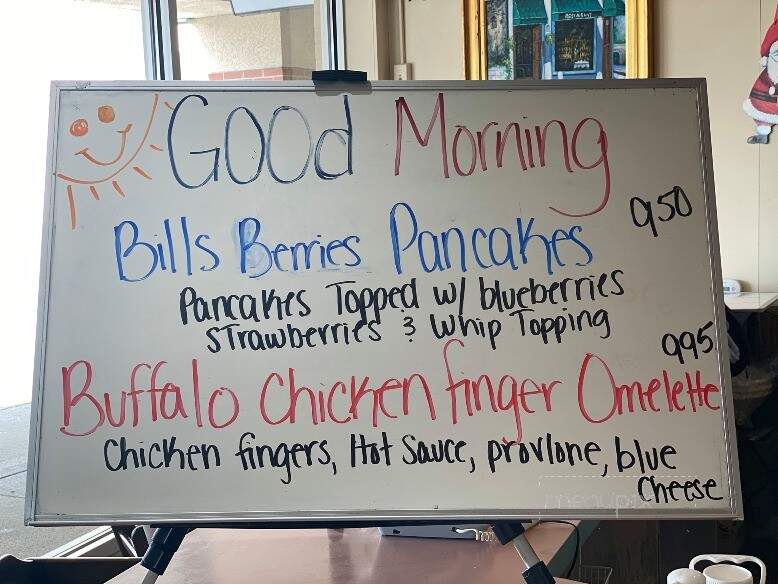 GOOd Morning
Bills Berries Pancakes 950
Pancakes Topped w/ blueberries
Strawberries & Whip Topping
995
Buffalo Chicken finger Omelette
Chicken fingers, Hot Sauce, provlone, blue
Cheese
menupix